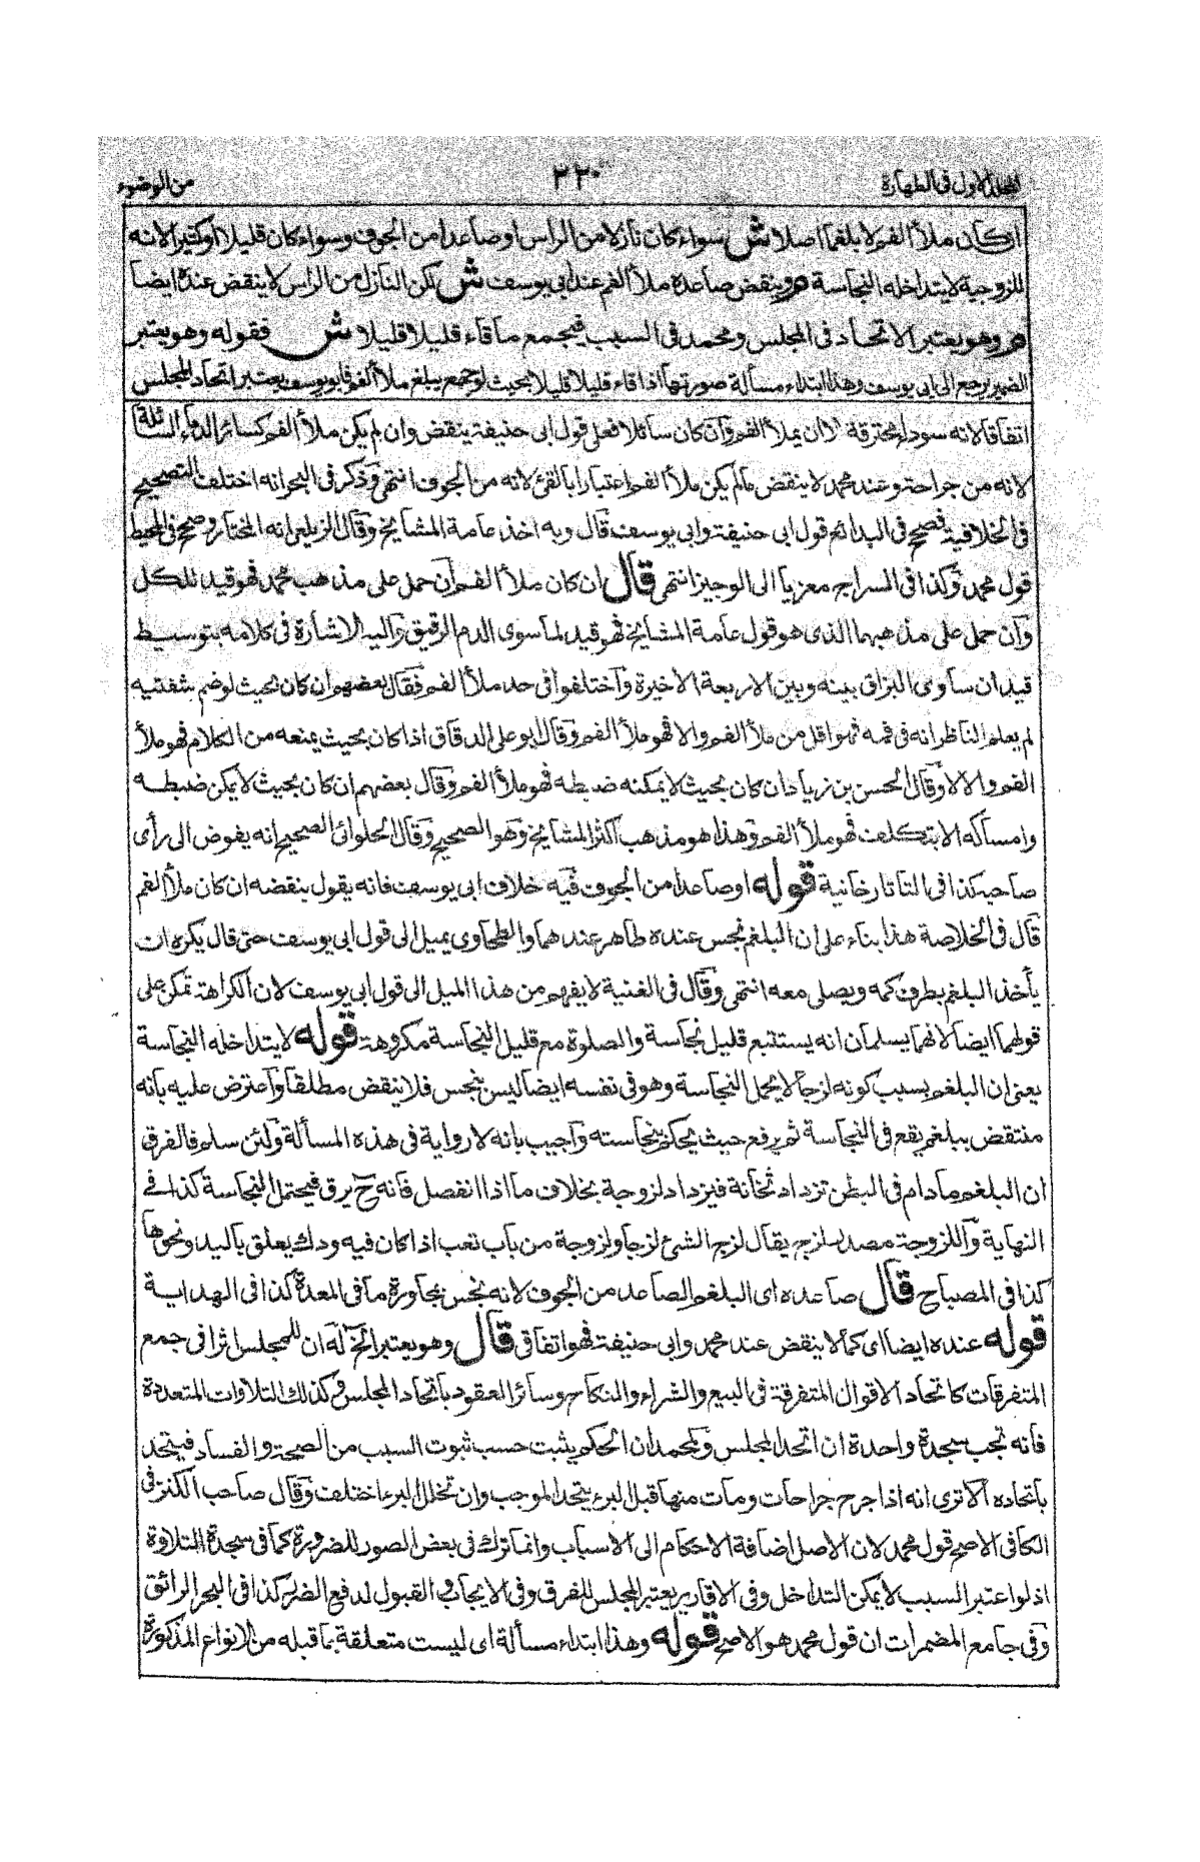 المجلد الاول فى الطهارة ٣٢٠ من الوضوء
ان كان ملأ الفم لا بلغما اصلا ش سواء كان نازلا من الراس او صاعدا من الجوف وسواء كان قليلا او كثيرا لانه
للزوجية لا يتداخله النجاسة م وينقض صاعده ملأ الفم عند ابى يوسف ش لكن النازل من الراس لا ينقض عنده ايضا
م وهو يعتبر الاتحاد فى المجلس ومحمد فى السبب فيجمع ما قاء قليلا قليلا ش فقوله وهو يعتبر
الضمير يرجع الى ابى يوسف وهذا ابتداء مسألة صورتها اذا قاء قليلا قليلا بحيث لو جمع يبلغ ملأ الفم فابو يوسف يعتبر اتحاد المجلس
اتفاقا لانه سوداء محترقة الا ان يملأ الفم وان كان سائلا فعلى قول ابى حنيفة ينقض وان لم يكن ملأ الفم كسائر الدماء السائلة
لانه من جراحة وعند محمد لا ينقض ما لم يكن ملأ الفم اعتبارا بالقئ لانه من الجوف انتهى وذكر فى البحر انه اختلف التصحيح
فى الخلافية فصحح فى البدائع قول ابى حنيفة وابى يوسف قال وبه اخذ عامة المشايخ وقال الزيلعى انه المختار وصحح فى المحيط
قول محمد وكذا فى السراج معزيا الى الوجيز انتهى قال ان كان ملأ الفم ان حمل على مذهب محمد فهو قيد للكل
وان حمل على مذهبهما الذى هو قول عامة المشايخ فهو قيد لما سوى الدم الرقيق واليه الاشارة فى كلامه بتوسيط
قيد ان ساوى البزاق بينه وبين الاربعة الاخيرة واختلفوا فى حد ملأ الفم فقال بعضهم ان كان بحيث لو ضم شفتيه
لم يعلم الناظر انه فى فمه فهو اقل من ملأ الفم والا فهو ملأ الفم وقال ابو على الدقاق اذا كان بحيث يمنعه من الكلام فهو ملأ
الفم والا لا وقال الحسن بن زياد ان كان بحيث لا يمكنه ضبطه فهو ملأ الفم وقال بعضهم ان كان بحيث لا يمكن ضبطه
وامساكه الا بتكلف فهو ملأ الفم وهذا هو مذهب اكثر المشايخ وهو الصحيح وقال الحلوائى الصحيح انه يفوض الى رأى
صاحبه كذا فى التاتارخانية قوله او صاعدا من الجوف فيه خلاف ابى يوسف فانه يقول بنقضه ان كان ملأ الفم
قال فى الخلاصة هذا بناء على ان البلغم نجس عنده طاهر عندهما والطحاوى يميل الى قول ابى يوسف حتى قال يكره ان
يأخذ البلغم بطرف كمه ويصلى معه انتهى وقال فى الغنية لا يفهم من هذا الميل الى قول ابى يوسف لان الكراهة تمكن على
قولهما ايضا لانهما يسلمان انه يستتبع قليل نجاسة والصلوة مع قليل النجاسة مكروهة قوله لا يتداخله النجاسة
يعنى ان البلغم بسبب كونه لزجا لا يحمل النجاسة وهو فى نفسه ايضا ليس بنجس فلا ينقض مطلقا واعترض عليه بانه
منتقض ببلغم يقع فى النجاسة ثم يرفع حيث يحكم بنجاسته واجيب بانه لا رواية فى هذه المسألة ولئن سلم فالفرق
ان البلغم ما دام فى البطن تزداد ثخانة فيزداد لزوجة بخلاف ما اذا انفصل فانه ح يرق فيحتمل النجاسة كذا فى
النهاية واللزوجة مصدر لزج يقال لزج الشئ لزجا ولزوجة من باب تعب اذا كان فيه ودك يعلق باليد ونحوها
كذا فى المصباح قال صاعده اى البلغم الصاعد من الجوف لانه نجس بمجاورة ما فى المعدة كذا فى الهداية
قوله عنده ايضا اى كما لا ينقض عند محمد وابى حنيفة فهو اتفاقى قال وهو يعتبر الخ له ان للمجلس اثرا فى جمع
المتفرقات كاتحاد الاقوال المتفرقة فى البيع والشراء والنكاح وسائر العقود باتحاد المجلس وكذلك التلاوات المتعددة
فانه تجب سجدة واحدة ان اتحد المجلس ولمحمد ان الحكم يثبت حسب ثبوت السبب من الصحة والفساد فيتحد
باتحاده الا ترى انه اذا جرح جراحات ومات منها قبل البرء يتحد الموجب وان تخلل البرء اختلف وقال صاحب الكنز فى
الكافى الاصح قول محمد لان الاصل اضافة الاحكام الى الاسباب وانما ترك فى بعض الصور للضرورة كما فى سجدة التلاوة
اذ لو اعتبر السبب لا يمكن التداخل وفى الاقارير يعتبر المجلس للعرف وفى الايجاب والقبول لدفع الضرر كذا فى البحر الرائق
وفى جامع المضمرات ان قول محمد هو الاصح قوله وهذا ابتداء مسألة اى ليست متعلقة بما قبله من الانواع المذكورة